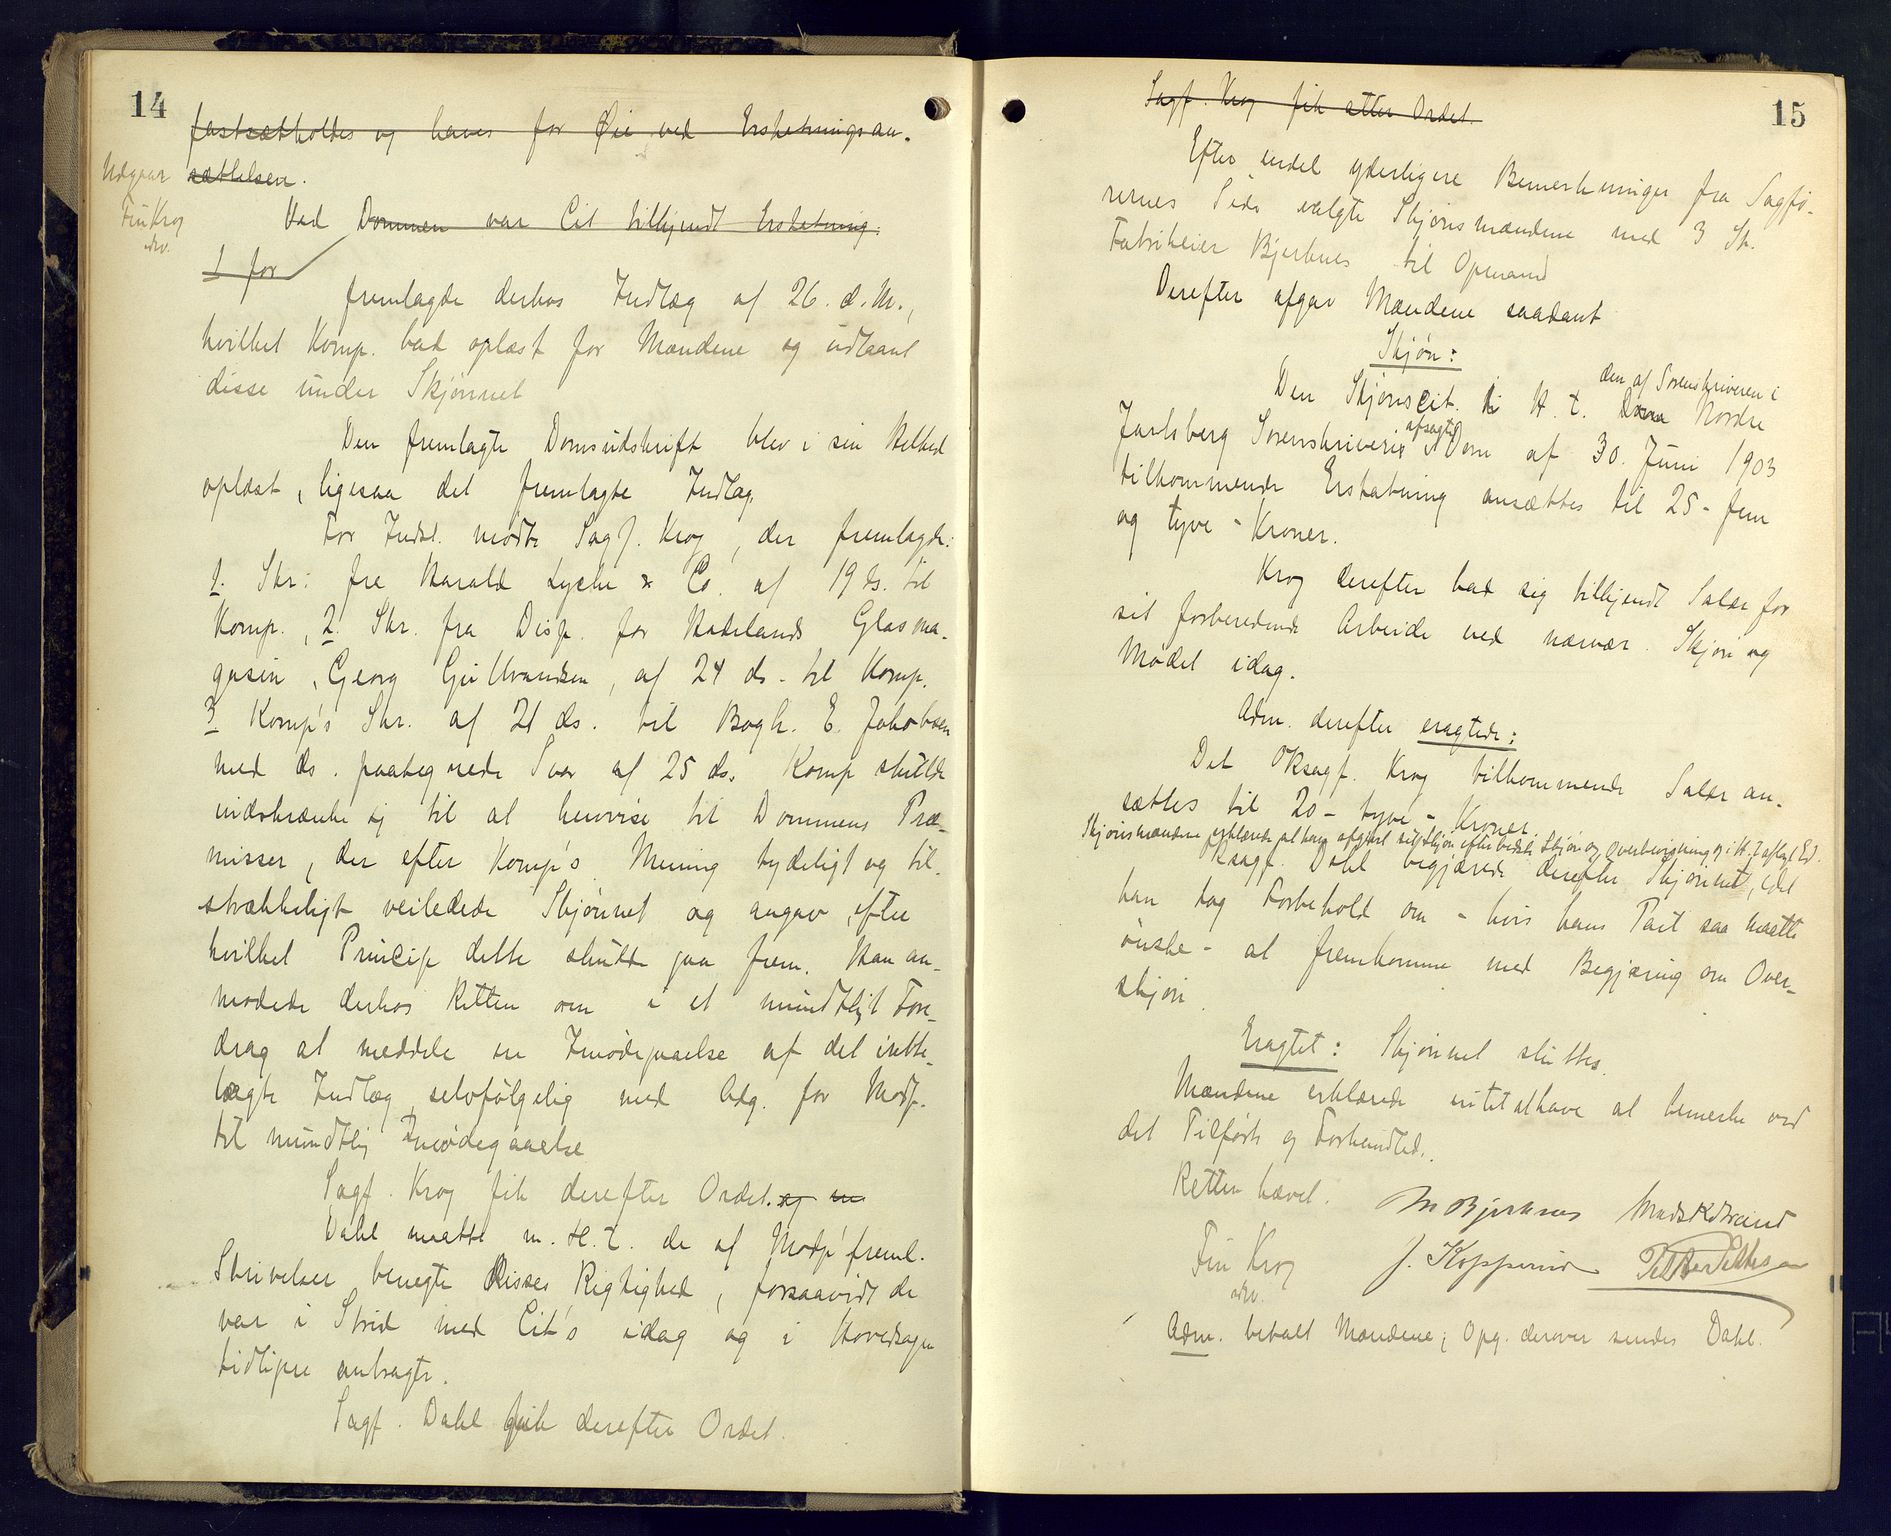 14
fastsætholdes og haves for Øie ved Erstatningsan-
sættelsen.
Udgaar
Fin Krog
adv.
Ved Dommen var Cit tilkjendt Erstatning.
1 for
fremlagde derhos Indlæg af 26. d. M.,
hvilket Komp. bad oplæst for Mændene og udlaant
disse under Skjønnet
Den fremlagte Domsudskrift blev i sin Helhed
oplæst, ligesaa det fremlagte Indlæg
For Indst. mødte Sagf. Krog, der fremlagde:
1. Skr: fra Harald Lyche & Co. af 19 ds. til
Komp., 2. Skr. fra Disp. for Hadelands Glasma-
gasin, Georg Gulbrandsen, af 24 ds. til Komp.
3 Komp's Skr. af 21 ds. til Bogh. E. Jakobsen
med ds. paategnede Svar af 25 ds. Komp skulde
indskrænke sig til at henvise til Dommens Præ-
misser, der efter Komp's Mening tydeligt og til-
strækkeligt veiledede Skjønnet og angav, efter
hvilket Princip dette skulde gaa frem. Han an-
modede derhos Retten om i et mundtligt Fore-
drag at meddele en Imødegaaelse af det irette-
lagte Indlæg, selvfølgelig med Adg. for Modp.
til mundtlig Imødegaaelse
Sagf. Krog fik derefter Ordet. og en
Dahl maatte m. H. t. de af Modp' freml.
Skrivelser benegte disses Rigtighed, forsaavidt de
var i Strid med Cit's idag og i Hovedsagen
tidligere anbragte.
Sagf. Dahl fik derefter Ordet.
15
Sagf. Krog fik atter Ordet.
Efter endel yderligere Bemerkninger fra Sagfø-
rernes Side valgte Skjønsmændene med 3 St.
Fabrikeier Bjerknes til Opmand
Derefter afgav Mændene saadant
Skjøn:
den af Sorenskriveren i
Den Skjønscit. i H. t. Nordre
afsagte
Jarlsberg Sorenskriveri Dom af 30. Juni 1903
tilkommende Erstatning ansættes til 25 - fem
og tyve - Kroner.
Krog derefter bad sig tilkjendt Salær for
sit forberedende Arbeide ved nærvær. Skjøn og
Mødet idag.
Adm. derefter eragtede:
Det Oksagf. Krog tilkommende Salær an-
sættes til 20 - tyve - Kroner.
Skjønsmændene erklærede at have afgivet sit Skjøn efter bedste Skjøn og Overbevisning og i H. t aflagt Ed.
Oksagf. Dahl begjærede derefter Skjønnet, idet
han tog Forbehold om - hvis hans Part saa maatte
ønske - at fremkomme med Begjæring om Over-
skjøn.
Eragtet: Skjønnet sluttes.
Mændene erklærede intet at have at bemerke ved
det Tilførte og Forhandlede.
Retten hævet.
M Bjerknes Mads Kostrand
Fin Krog
adv.
J. Koppernæs
Adm. betalt Mændene; Opg. derover sendes Dahl.